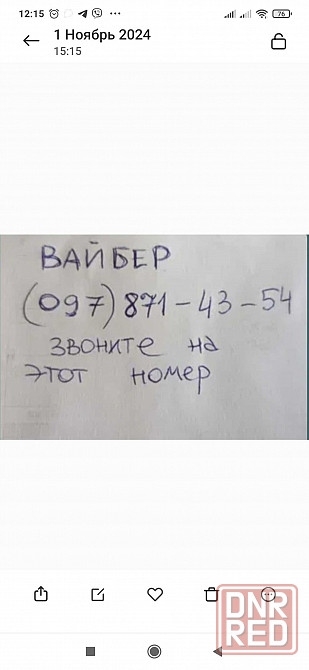 12:15
76
1 Ноябрь 2024
15:15
ВАЙБЕР
(097) 871-43-54
звоните на
этот номер
DNR
RED